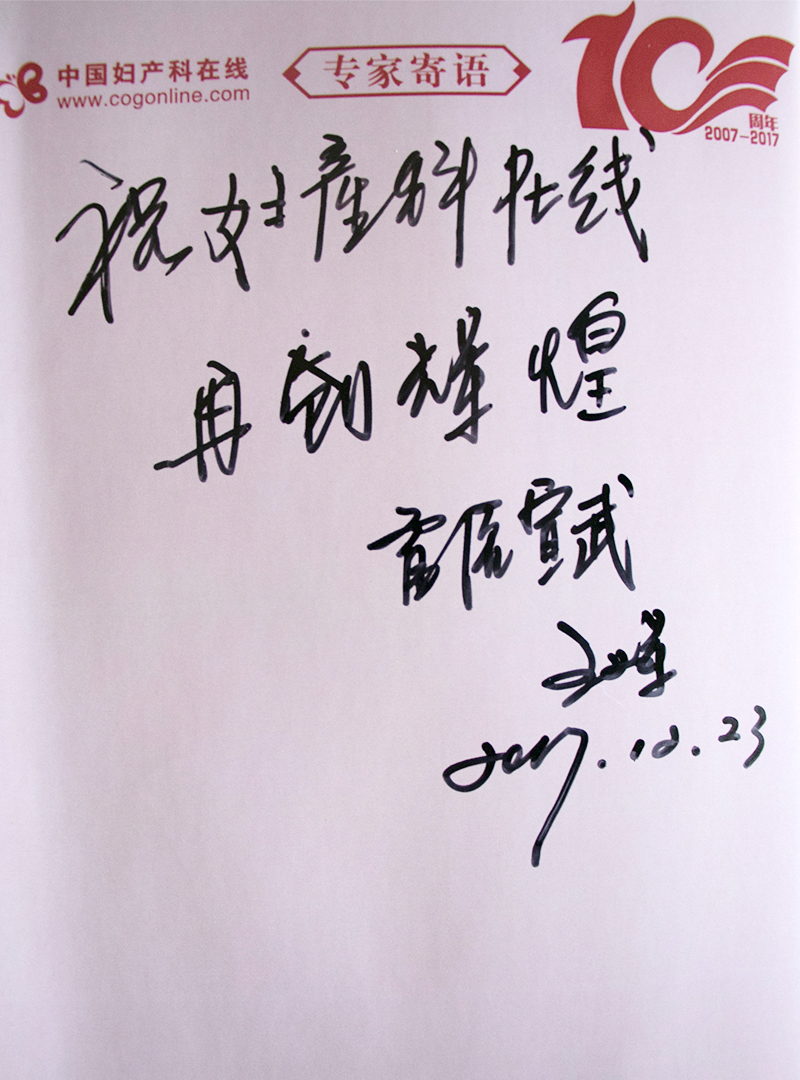 中国妇产科在线
www.cogonline.com
专家寄语
10
周年
2007-2017
祝妇産科在线
再创辉煌
首医宣武
2017.10.23